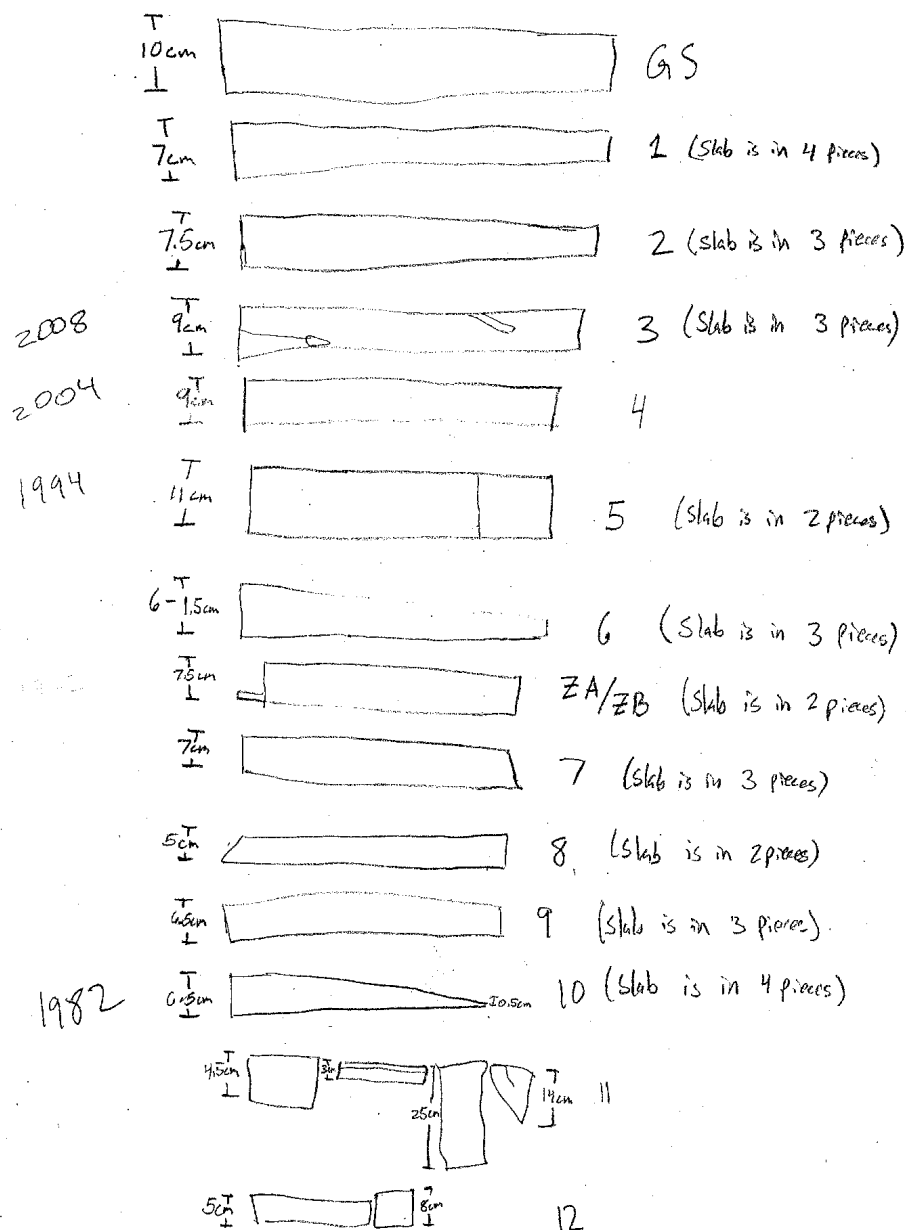 10cm GS
7cm 1 (Slab is in 4 pieces)
7.5cm 2 (Slab is in 3 pieces)
2008 9cm 3 (Slab is in 3 pieces)
2004 9cm 4
1994 11cm 5 (Slab is in 2 pieces)
6-1.5cm 6 (Slab is in 3 pieces)
7.5cm ZA/ZB (Slab is in 2 pieces)
7cm 7 (Slab is in 3 pieces)
5cm 8 (Slab is in 2 pieces)
6.5cm 9 (Slab is in 3 pieces)
1982 6.5cm 0.5cm 10 (Slab is in 4 pieces)
4.5cm 25cm 14cm 11
5cm 8cm 12